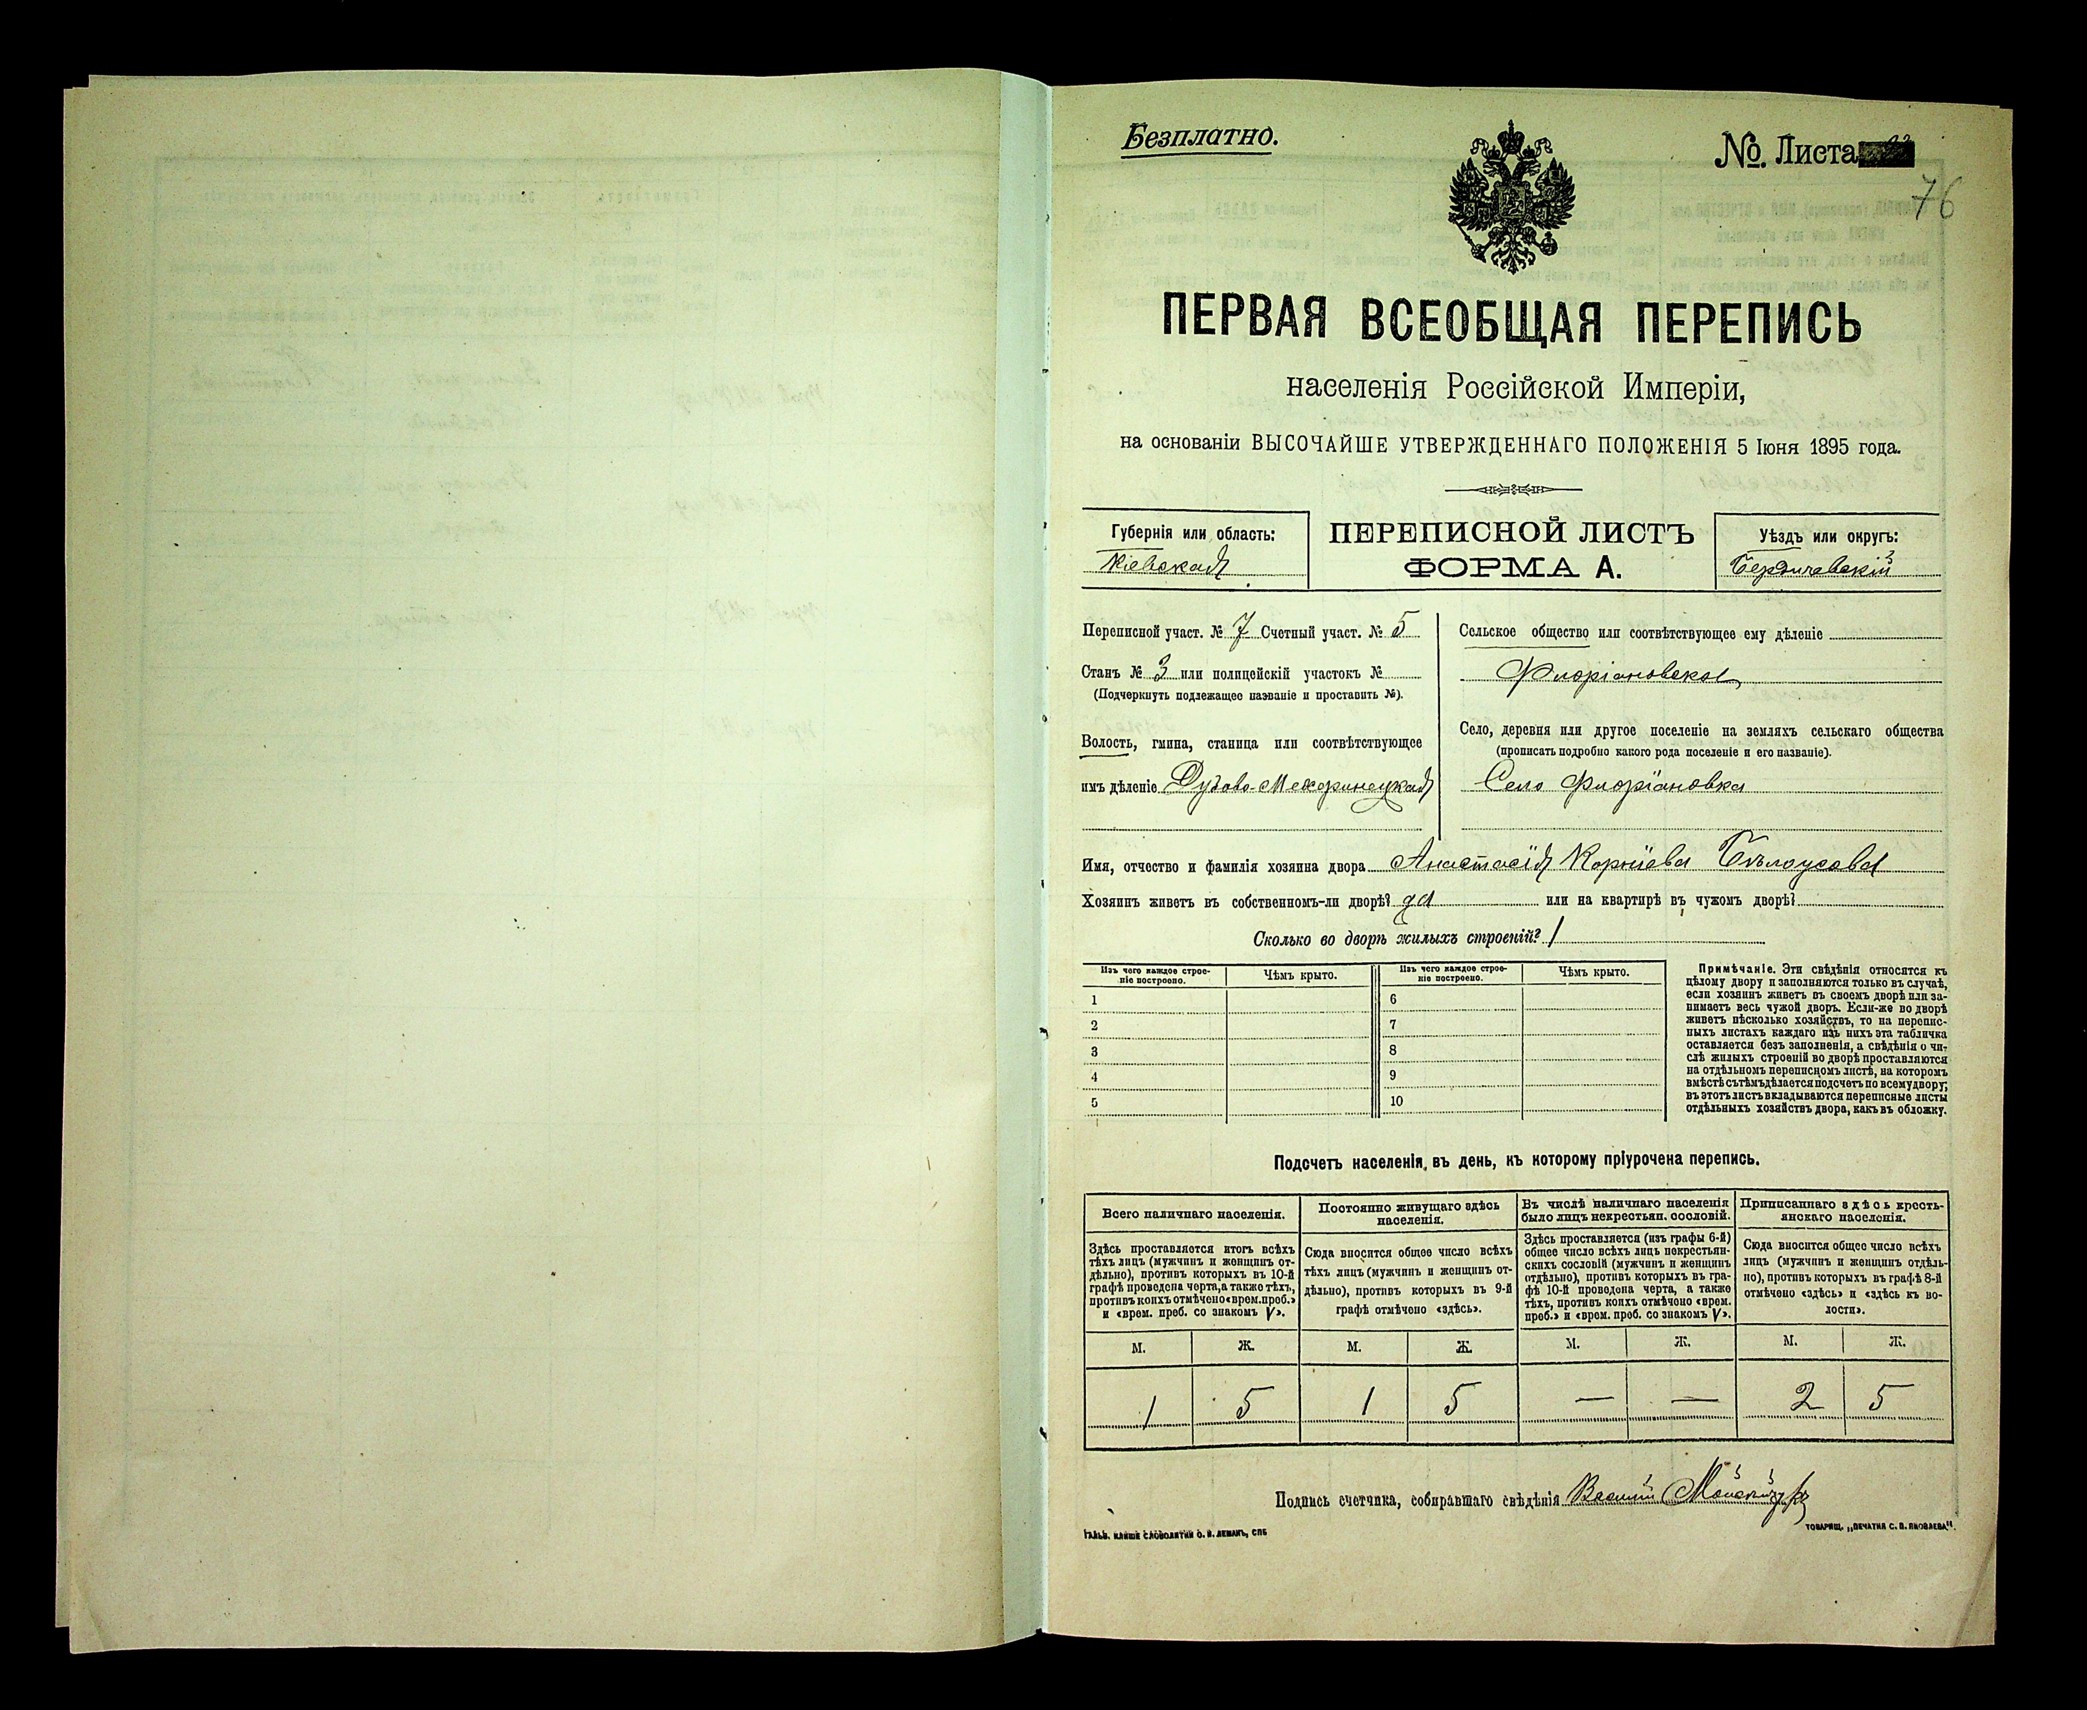 Безплатно.
№. Листа
76
ПЕРВАЯ ВСЕОБЩАЯ ПЕРЕПИСЬ
населенія Россійской Имперіи,
на основаніи ВЫСОЧАЙШЕ УТВЕРЖДЕННАГО ПОЛОЖЕНІЯ 5 Іюня 1895 года.
Губернія или область:
Кіевская
ПЕРЕПИСНОЙ ЛИСТЪ
ФОРМА А.
Уѣздъ или округъ:
Бердичевскій
Переписной участ. № 7 Счетный участ. № 5
Станъ № 3 или полицейскій участокъ №
(Подчеркнуть подлежащее названіе и проставить №).
Волость, гмина, станица или соотвѣтствующее
имъ дѣленіе Дубово-Махаринецкая
Сельское общество или соотвѣтствующее ему дѣленіе
Флоріановское
Село, деревня или другое поселеніе на земляхъ сельскаго общества
(прописать подробно какого рода поселеніе и его названіе).
Село Флоріановка
Имя, отчество и фамилія хозяина двора Анастасія Корніева Бѣлоусова
Хозяинъ живетъ въ собственномъ-ли дворѣ? да или на квартирѣ въ чужомъ дворѣ?
Сколько во дворѣ жилыхъ строеній? 1
Изъ чего каждое строе-
ніе построено.
Чѣмъ крыто.
Изъ чего каждое строе-
ніе построено.
Чѣмъ крыто.
1
2
3
4
5
6
7
8
9
10
Примѣчаніе. Эти свѣдѣнія относятся къ
цѣлому двору и заполняются только въ случаѣ,
если хозяинъ живетъ въ своемъ дворѣ или за-
нимаетъ весь чужой дворъ. Если-же во дворѣ
живетъ нѣсколько хозяйствъ, то на перепис-
ныхъ листахъ каждаго изъ нихъ эта табличка
оставляется безъ заполненія, а свѣдѣнія о чи-
слѣ жилыхъ строеній во дворѣ проставляются
на отдѣльномъ переписномъ листѣ, на которомъ
вмѣстѣ съ тѣмъ дѣлается подсчетъ по всему двору;
въ этотъ листъ вкладываются переписные листы
отдѣльныхъ хозяйствъ двора, какъ въ обложку.
Подсчетъ населенія въ день, къ которому пріурочена перепись.
Всего наличнаго населенія.
Здѣсь проставляется итогъ всѣхъ
тѣхъ лицъ (мужчинъ и женщинъ от-
дѣльно), противъ которыхъ въ 10-й
графѣ проведена черта, а также тѣхъ,
противъ коихъ отмѣчено «врем. преб.»
и «врем. преб. со знакомъ V».
Постоянно живущаго здѣсь
населенія.
Сюда вносится общее число всѣхъ
тѣхъ лицъ (мужчинъ и женщинъ от-
дѣльно), противъ которыхъ въ 9-й
графѣ отмѣчено «здѣсь».
Въ числѣ наличнаго населенія
было лицъ некрестьян. сословій.
Здѣсь проставляется (изъ графы 6-й)
общее число всѣхъ лицъ некрестьян-
скихъ сословій (мужчинъ и женщинъ
отдѣльно), противъ которыхъ въ гра-
фѣ 10-й проведена черта, а также
тѣхъ, противъ коихъ отмѣчено «врем.
преб.» и «врем. преб. со знакомъ V».
Приписаннаго здѣсь кресть-
янскаго населенія.
Сюда вносится общее число всѣхъ
лицъ (мужчинъ и женщинъ отдѣль-
но), противъ которыхъ въ графѣ 8-й
отмѣчено «здѣсь» и «здѣсь къ во-
лости».
М. Ж. М. Ж. М. Ж. М. Ж.
1 5 1 5 — — 2 5
Подпись счетчика, собиравшаго свѣдѣнія
ГАЛЬВ. КЛИШЕ СЛОВОЛИТНИ О. И. ЛЕМАНЪ, СПБ
ТОВАРИЩ. „ПЕЧАТНЯ С. П. ЯКОВЛЕВА“.